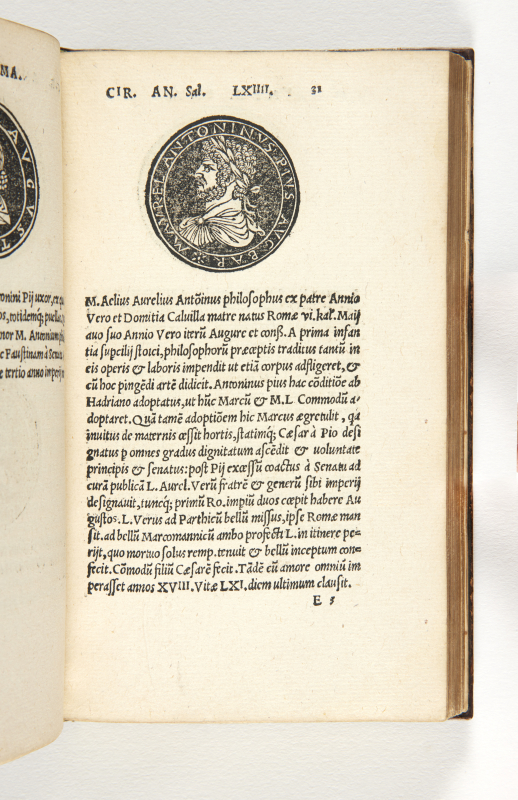 MA.
AVGVST
onini Pij uxor, ex
os, totidemq; puellas
nor M. Antonium
c Faustinam à Senatu
e tertio anno imperij
CIR. AN. Sal. LXIIII. 31
M. AVREL. ANTONINVS. PIVS AVG. P. A. R.
M. Aelius Aurelius Antõinus philosophus ex patre Annio
Vero et Domitia Caluilla matre natus Romæ vi. kal. Maij
auo suo Annio Vero iterũ Augure et conß. A prima infan
tia supcilij stoici, philosophorũ præceptis traditus tantũ in
eis operis & laboris impendit ut etiã corpus adfligeret, &
cũ hoc pingẽdi artẽ didicit. Antoninus pius hac cõditiõe ab
Hadriano adoptatus, ut hũc Marcũ & M. L Commodũ a-
doptaret. Quã tamẽ adoptiõem hic Marcus ægretulit, qa
inuitus de maternis cessit hortis, statimq; Cæsar à Pio desi
gnatus p omnes gradus dignitatum ascẽdit & uoluntate
principis & senatus: post Pij excessũ coactus à Senatu ad
curã publicã L. Aurel. Verũ fratrẽ & generũ sibi imperij
designauit, tuncq; primũ Ro. impiũ duos cœpit habere Au
gustos. L. Verus ad Parthicũ bellũ missus, ipse Romæ man
sit. ad bellũ Marcomannicũ ambo profecti L. in itinere pe-
rijt, quo mortuo solus remp. tenuit & bellũ inceptum con-
fecit. Cõmodũ filiũ Cæsarẽ fecit. Tãdẽ cũ amore omniũ im
perasset annos XVIII. Vitæ LXI. diem ultimum clausit.
E 3